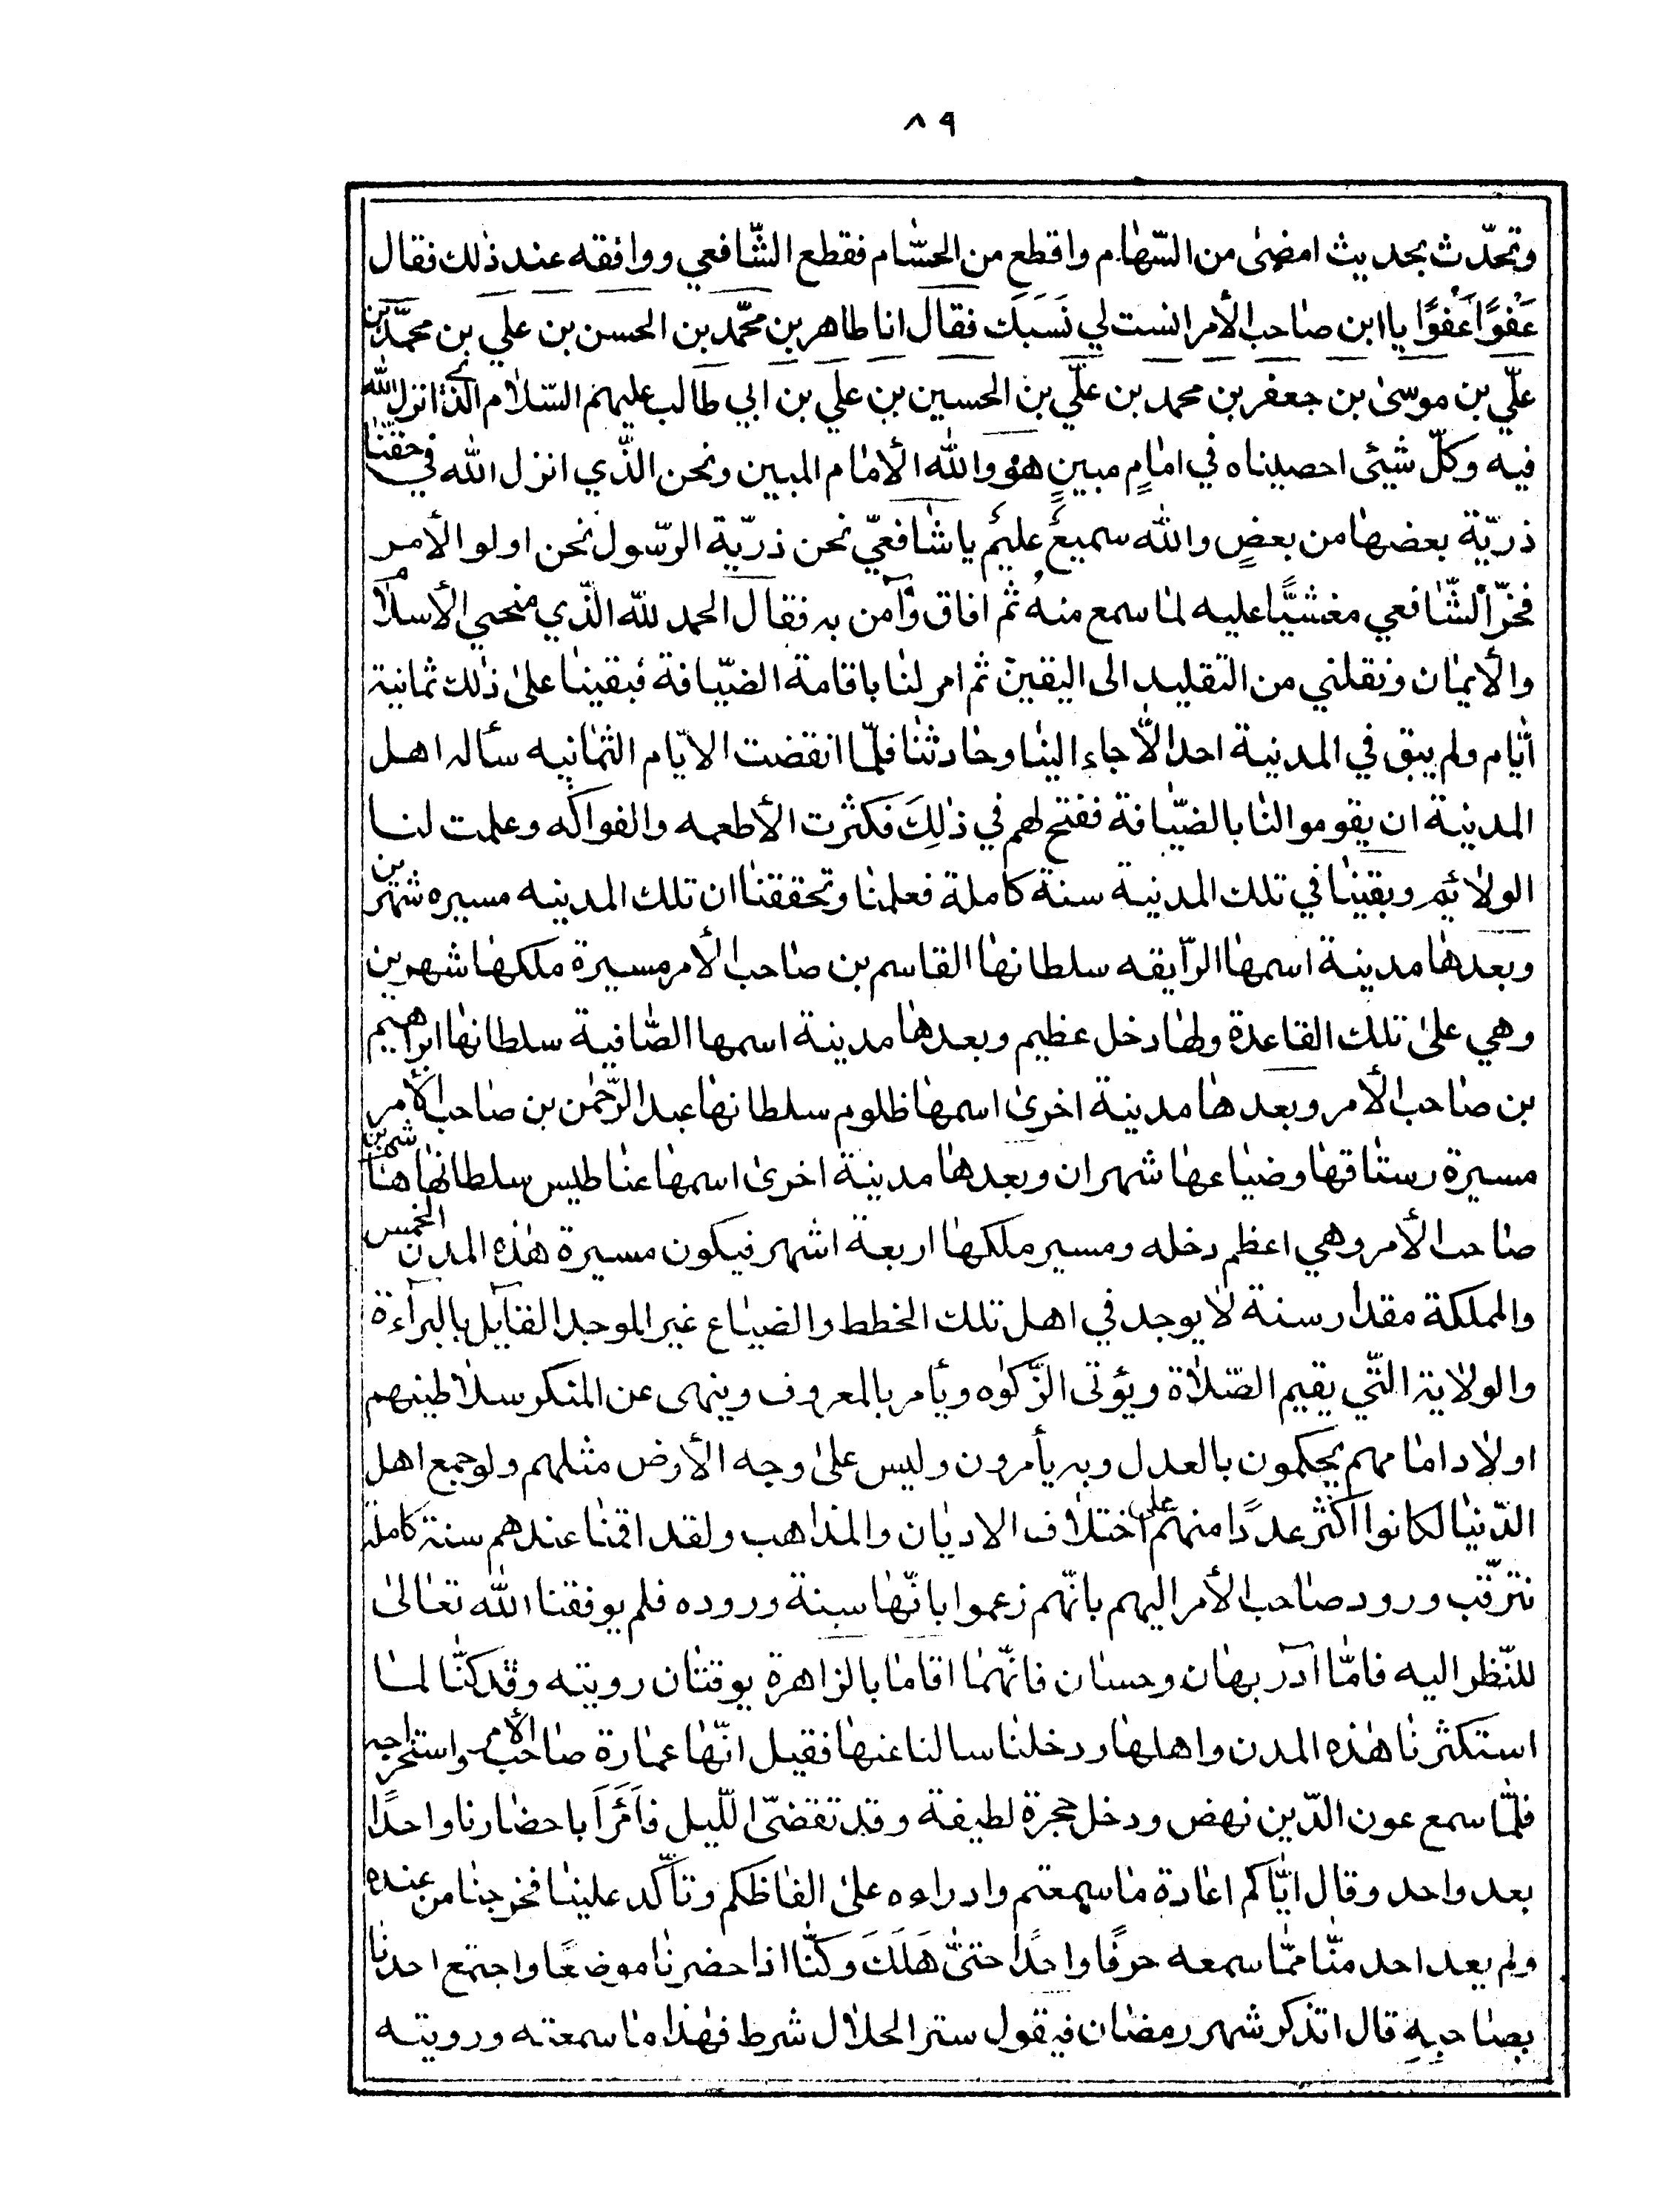 ٨٩
وتحدّث بحديث امضىٰ من السّهام واقطع من الحسّام فقطع الشّافعي ووافقه عند ذٰلك فقال
عَفوًا عَفوًا يا ابن صاحب الأمر انست لي نَسَبَكَ فقال انا طاهر بن محّمد بن الحسن بن علي بن محمّد بن
علّي بن موسىٰ بن جعفر بن محمد بن علّي بن الحسين بن علي بن ابي طالب عليهم السّلام الّذي انزل الله
فيه وكلّ شيئى احصيناه في امامٍ مبينٍ هو والله الأمام المبين ونحن الذّي انزل الله في حقنا
ذريّة بعضها من بعضٍ والله سميعٌ عليمٌ يا شافعيّ نحن ذريّة الرّسول نحن اولو الأمر
فخرّ الشّافعي مغشيًّا عليه لما سمع منه ثم افاق وآمن به فقال الحمد للّه الذّي منحي الأسلام
والأيمان ونقلني من التقليد الى اليقين ثم امر لنا باقامة الضيّافة فبقينا علىٰ ذٰلك ثمانية
أيّام ولم يبق في المدينة احد الّا جاء الينا وحادثنا فلمّا انقضت الايّام الثمانيه سأله اهل
المدينة ان يقوموا لنا بالضيّافة ففتح لهم في ذٰلِكَ فكثرت الأطعمه والفواكه وعلمت لنا
الولائم وبقينا في تلك المدينة سنة كاملة فعلمنا وتحققنا ان تلك المدينه مسيره شهرين
وبعدها مدينة اسمها الرّايقه سلطانها القاسم بن صاحب الأمر مسيرة ملكها شهرين
وهي علىٰ تلك القاعدة ولها دخل عظيم وبعدها مدينة اسمها الصّافية سلطانها ابراهيم
بن صاحب الأمر وبعدها مدينة اخرىٰ اسمها ظلوم سلطانها عبد الرّحمٰن بن صاحب الأمر
مسيرة رستاقها وضياعها شهران وبعدها مدينة اخرىٰ اسمها عناطيس سلطانها هاشم بن
صاحب الأمر وهي اعظم دخله ومسير ملكها اربعة اشهر فيكون مسيرة هٰذه المدن الخمس
والمملكة مقدار سنة لا يوجد في اهل تلك الخطط والضياع غير الموحد القايل بالبرآءة
والولاية التّي يقيم الصّلاة ويؤتى الزّكوٰه ويأمر بالمعروف وينهى عن المنكر سلاطينهم
اولاد امامهم يحكمون بالعدل وبه يأمرون وليس علىٰ وجه الأرض مثلهم ولو جمع اهل
الدّنيا لكانوا اكثر عددًا منهم على اختلاف الاديان والمذاهب ولقد اقمنا عندهم سنة كاملة
نترقّب ورود صاحب الأمر اليهم بانّهم زعموا بانّها سنة وروده فلم يوفقنا الله تعالىٰ
للنّظر اليه فامّا آدر بهان وحسان فانّهما اقاما بالزاهرة يوقتان رويته وقد كنّا لما
استكثرنا هٰذه المدن واهلها ودخلنا سالنا عنها فقيل انّها عمارة صاحب الأمر واستخراجه
فلمّا سمع عون الدّين نهض ودخل حجرة لطيفة وقد تقضىّ اللّيل فَاَمَرَ باحضارنا واحدًا
بعد واحد وقال ايّاكم اعادة ما سمعتم وادراءه علىٰ الفاظكم وتأكّد علينا فخرجنا من عنده
ولم يعد احد منّا ممّا سمعه حرفًا واحدًا حتىّٰ هَلَكَ وكنّا اذا حضرنا موضعًا واجتمع احدنا
بصاحبهِ قال اتذكر شهر رمضان فيقول ستر الحلال شرط فهٰذا ما سمعته ورويته